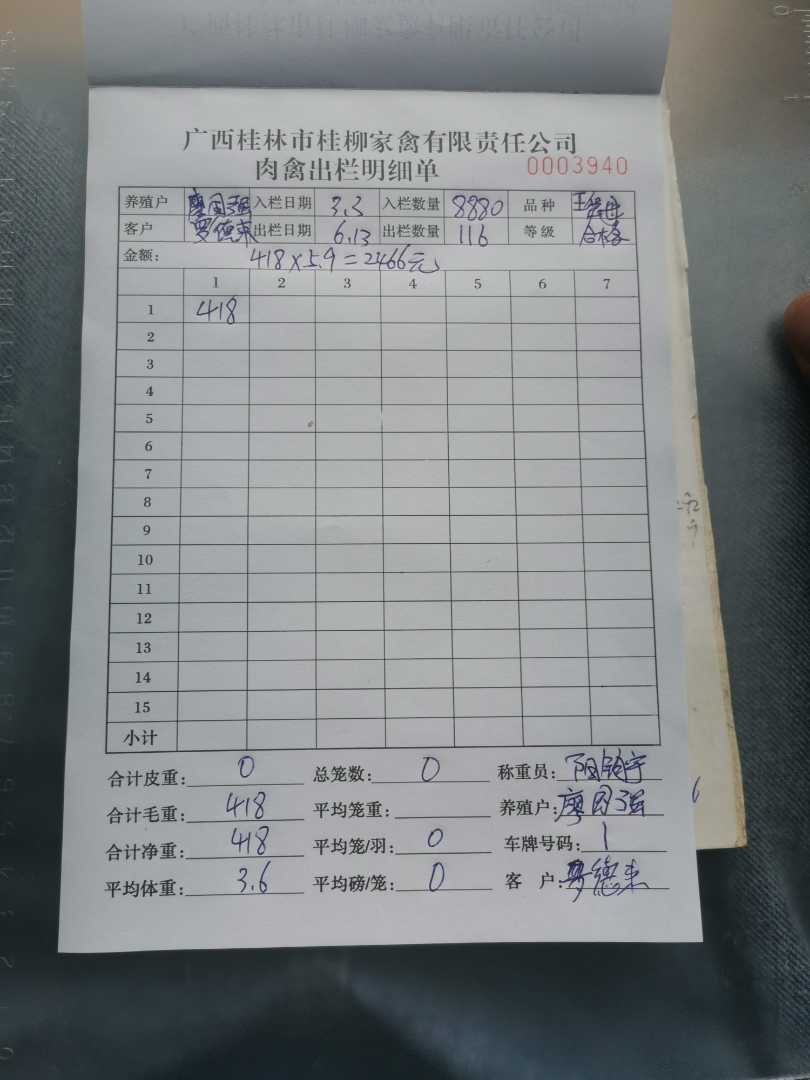 广西桂林市桂柳家禽有限责任公司
肉禽出栏明细单 0003940
养殖户 廖国强 入栏日期 3.3 入栏数量 8880 品种
客户 罗德来 出栏日期 6.13 出栏数量 116 等级 合格
金额: 418×5.9=2466元
1 2 3 4 5 6 7
1 418
2
3
4
5
6
7
8
9
10
11
12
13
14
15
小计
合计皮重: 0 总笼数: 0 称重员:
合计毛重: 418 平均笼重: 养殖户: 廖国强
合计净重: 418 平均笼/羽: 0 车牌号码: 1
平均体重: 3.6 平均磅/笼: 0 客 户: 罗德来